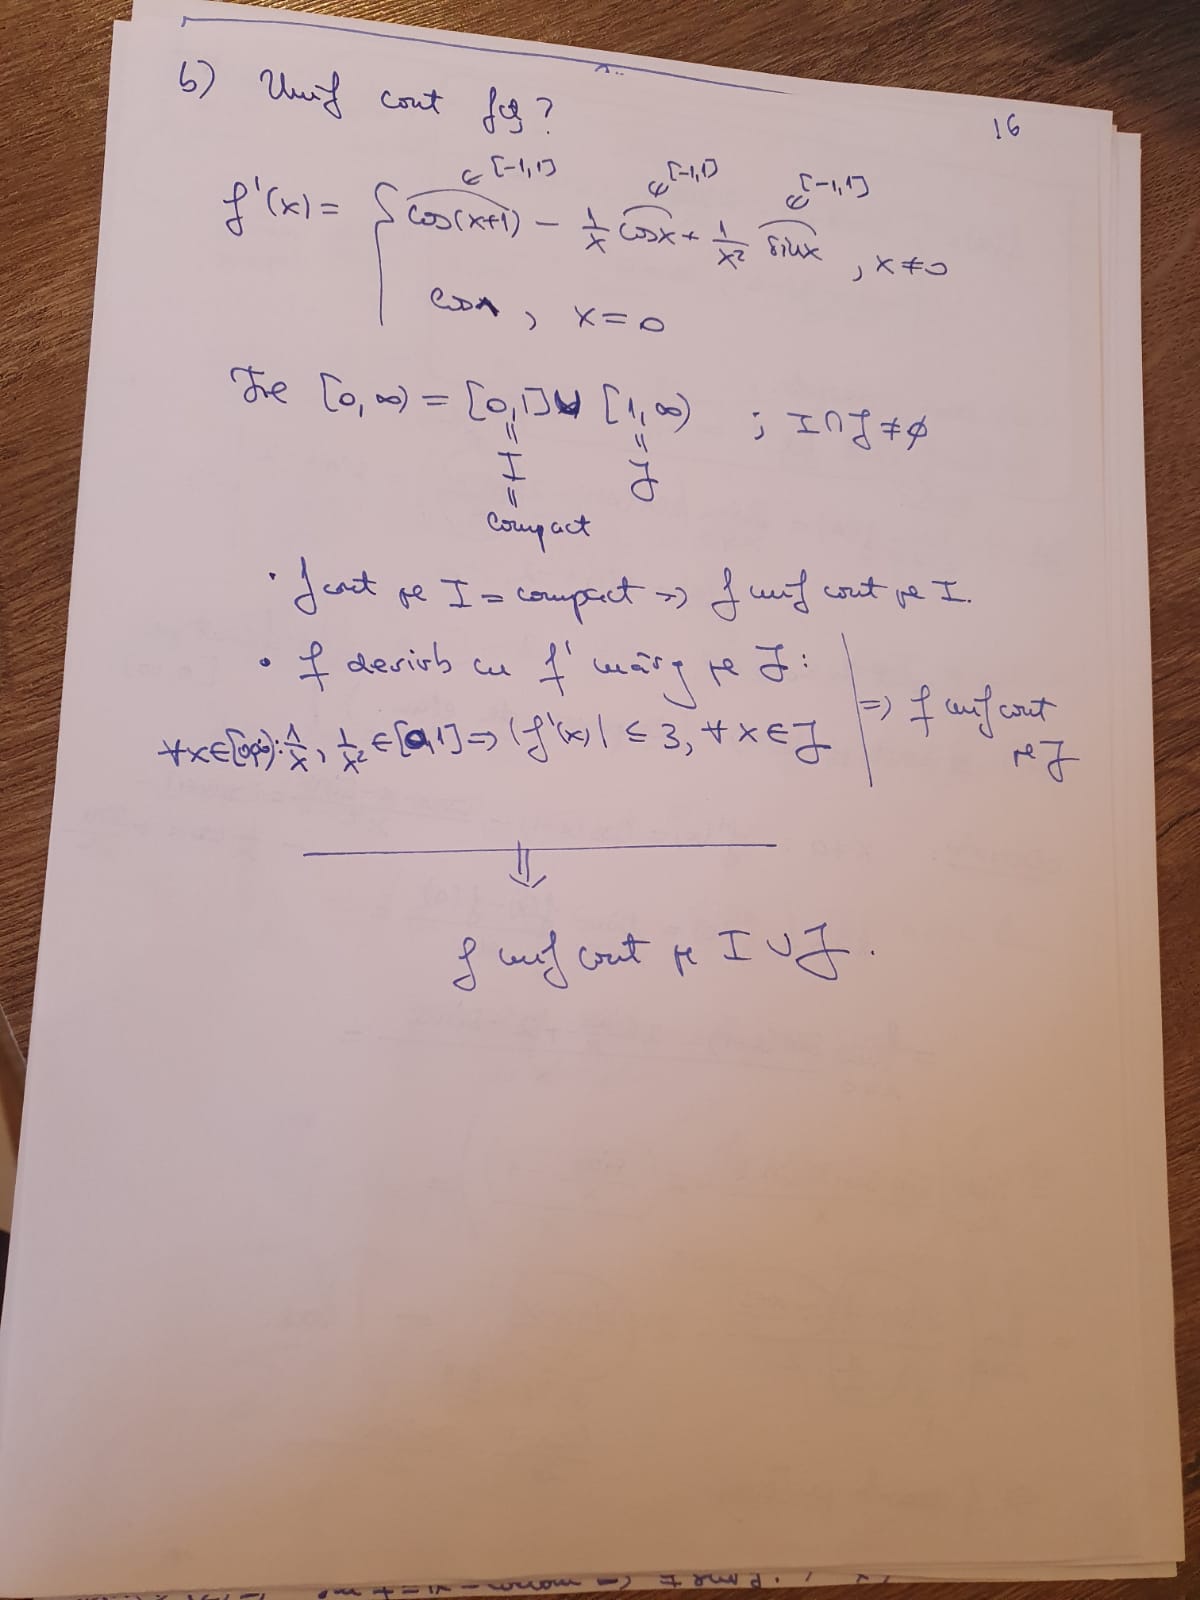 16
b) Unif cont fcț?
∈[-1,1] ∈[-1,1] ∈[-1,1]
f'(x) = { cos(x+1) - 1/x cosx + 1/x² sinx , x≠0
cos1 , x=0
Fie [0,∞) = [0,1] ∪ [1,∞) ; I∩J≠∅
" "
I J
"
compact
· f cont pe I = compact => f unif cont pe I.
• f derivb cu f' mărg pe J:
∀x∈[1,∞): 1/x, 1/x² ∈[0,1] => |f'(x)| ≤ 3, ∀x∈J | => f unif cont pe J
⇓
f unif cont pe I∪J.